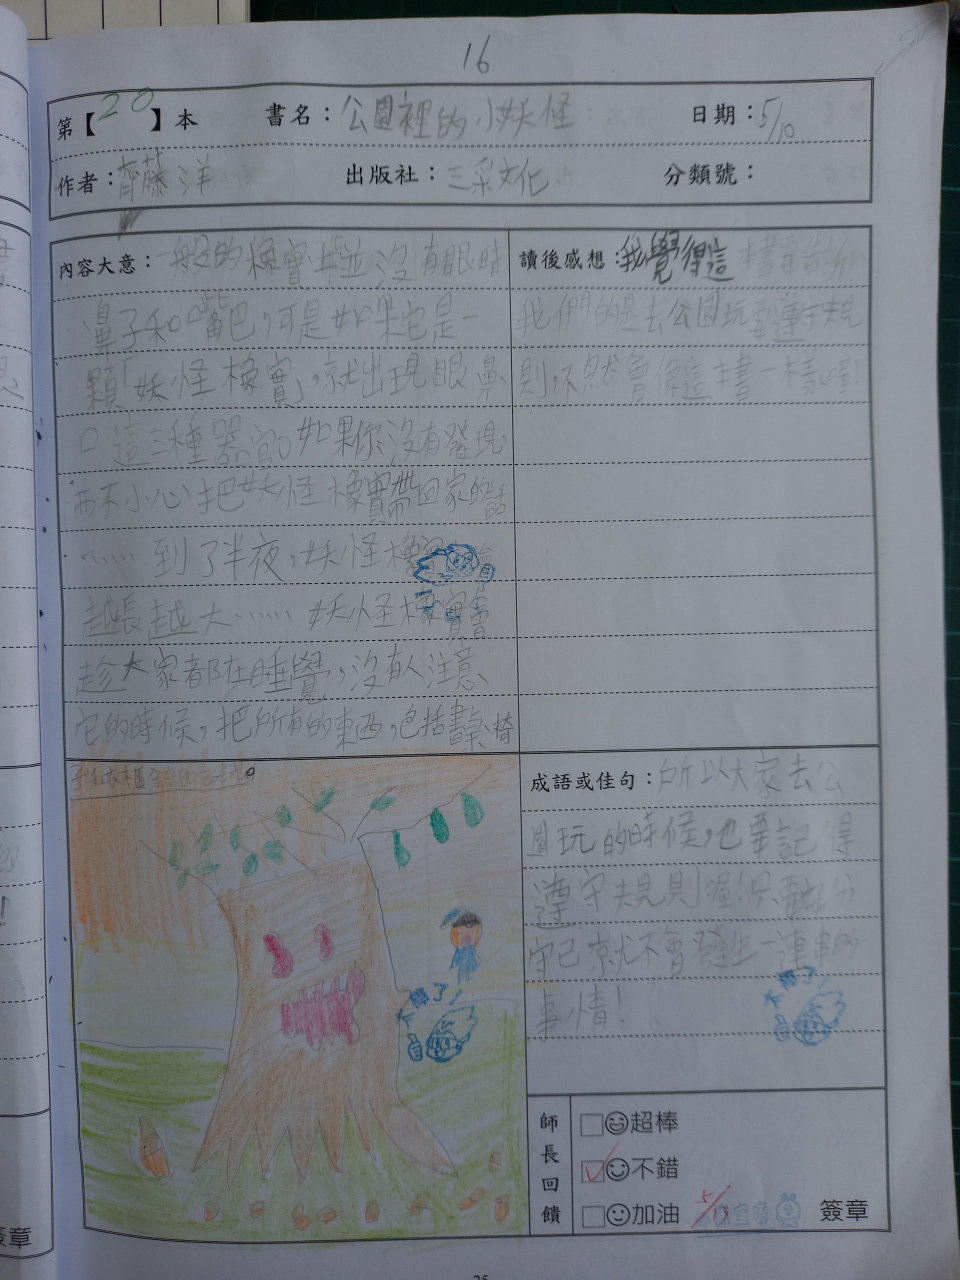 16
第【20】本 書名：公園裡的小妖怪 日期：5/10
作者：齊藤洋 出版社：三采文化 分類號：
內容大意：一般的橡實並沒有眼睛
鼻子和嘴巴，可是如果它是一
顆「妖怪橡實」，就出現眼鼻
口這三種器官。如果你沒有發現，
而不小心把妖怪橡實帶回家的話
……到了半夜，妖怪橡實會
越長越大……妖怪橡實會
趁大家都在睡覺，沒有人注意
它的時候，把所有的東西，包括書桌、椅
讀後感想：我覺得這本書要告訴
我們的是去公園玩要遵守規
則，不然會像這本書一樣喔！
成語或佳句：所以大家去公
園玩的時候，也要記得
遵守規則喔！只要安分
守己就不會發生一連串的
事情！
太棒了！
太棒了！
師長回饋
超棒
不錯
加油 5/13 簽章
簽章
25